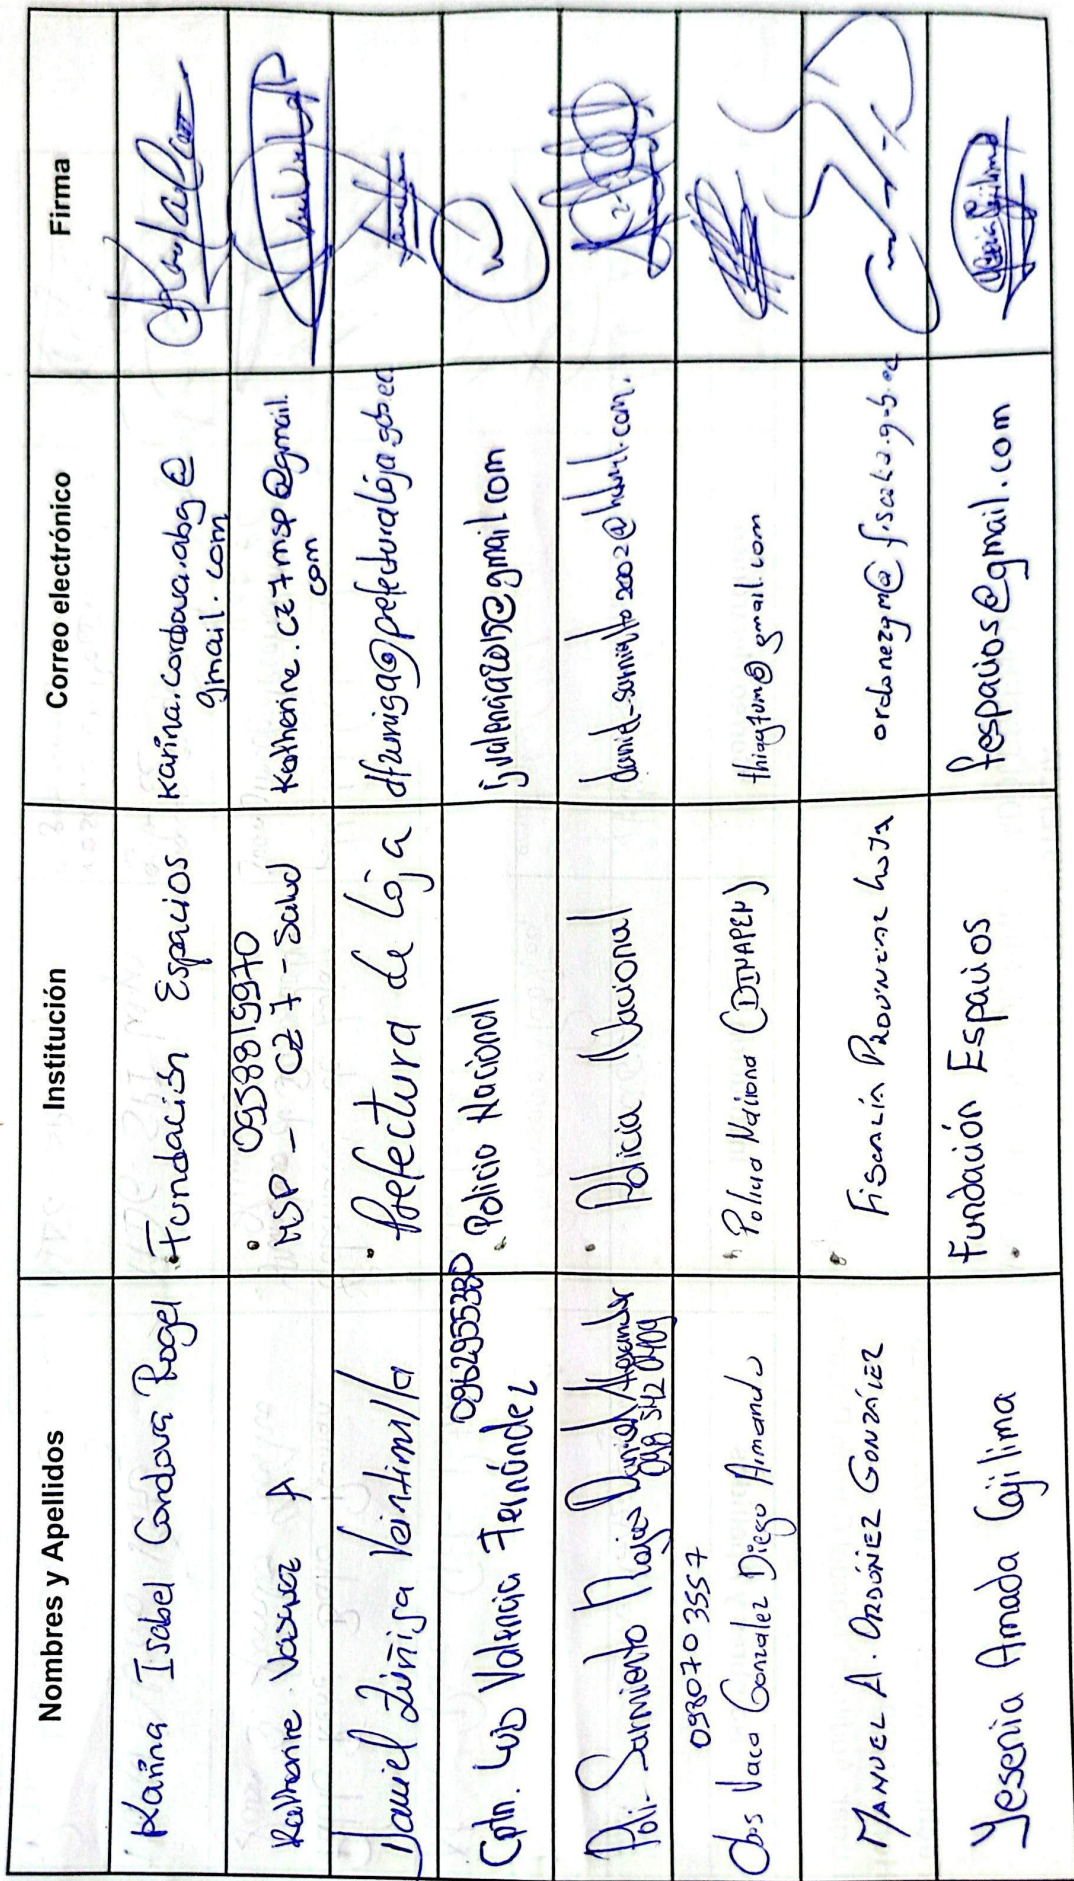 Nombres y Apellidos Institución Correo electrónico Firma
Karina Isabel Cordova Rogel Fundación Espacios karina.cordova.abg@
gmail.com
Katherine Vasquez A 0958819970
MSP - CZ7 - Salud Katherine.cz7msp@gmail.
com
Daniel Zúñiga Veintimilla Prefectura de Loja dzuniga@prefecturaloja.gob.ec
0962955380
Cptn. Luis Valencia Fernández Policio Nacional ijvalencia2015@gmail.com
Poli. Sarmiento Daniel Alexander
098 542 0409 Policia Nacional daniel-sarmiento2002@
0980703557
Cbos Vaca Gonzalez Diego Armando Policia Naciona (DINAPEN) @gmail.com
MANUEL A. ORDÓÑEZ GONZÁLEZ FISCALÍA PROVINCIAL LOJA ordonezgm@fiscalia.gob.ec
Yesenia Amada Cajilima Fundación Espacios fespacios@gmail.com